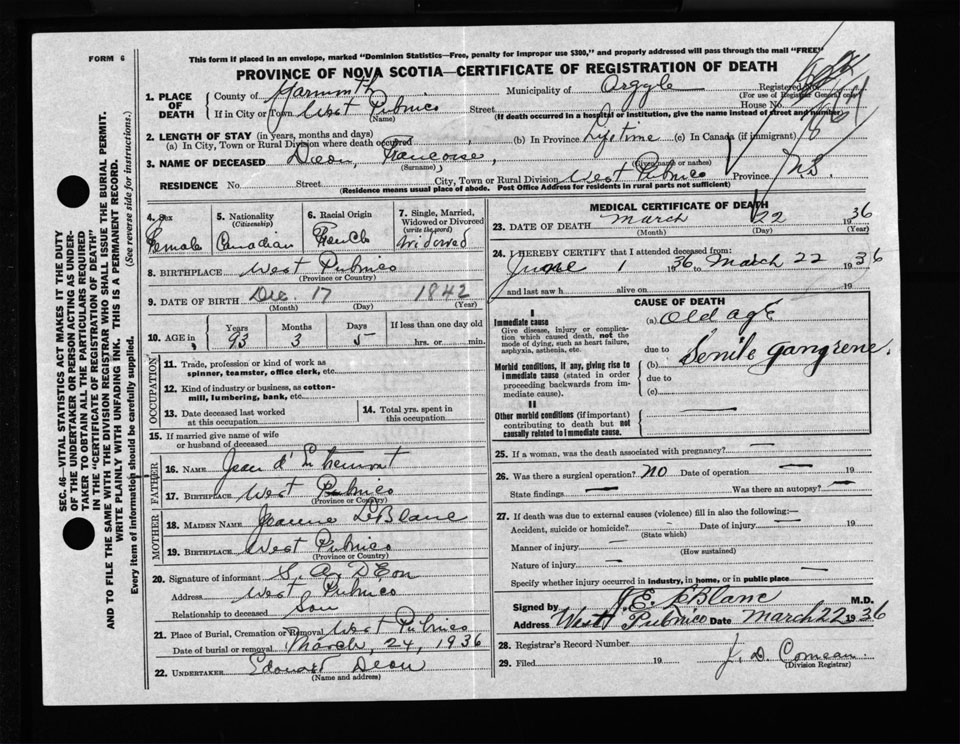 FORM 6
This form if placed in an envelope, marked "Dominion Statistics—Free, penalty for improper use $300," and properly addressed will pass through the mail "FREE"
PROVINCE OF NOVA SCOTIA—CERTIFICATE OF REGISTRATION OF DEATH
1. PLACE OF DEATH County of Yarmouth Municipality of Argyle Registered No.
(For use of Registrar General only)
If in City or Town West Pubnico Street House No.
(Name) (If death occurred in a hospital or institution, give the name instead of street and number)
2. LENGTH OF STAY (in years, months and days)
(a) In City, Town or Rural Division where death occurred (b) In Province Lifetime (c) In Canada (if immigrant)
3. NAME OF DECEASED Deon, Francoise,
(Surname) (Given name or names)
RESIDENCE No. Street City, Town or Rural Division West Pubnico Province N.S.
(Residence means usual place of abode. Post Office Address for residents in rural parts not sufficient)
4. Sex Female
5. Nationality (Citizenship) Canadian
6. Racial Origin French
7. Single, Married, Widowed or Divorced (write the word) Widowed
8. BIRTHPLACE West Pubnico
(Province or Country)
9. DATE OF BIRTH Dec. 17 1842
(Month) (Day) (Year)
10. AGE in Years 93 Months 3 Days 5 If less than one day old hrs. or min.
OCCUPATION
11. Trade, profession or kind of work as spinner, teamster, office clerk, etc.
12. Kind of industry or business, as cotton-mill, lumbering, bank, etc.
13. Date deceased last worked at this occupation
14. Total yrs. spent in this occupation
15. If married give name of wife or husband of deceased
FATHER
16. NAME Jean d'
17. BIRTHPLACE West Pubnico
(Province or Country)
MOTHER
18. MAIDEN NAME Jeanne LeBlanc
19. BIRTHPLACE West Pubnico
(Province or Country)
20. Signature of informant S. A. D'Eon
Address West Pubnico
Relationship to deceased Son
21. Place of Burial, Cremation or Removal West Pubnico
Date of burial or removal March, 24, 1936
22. UNDERTAKER Edouard Deon
(Name and address)
MEDICAL CERTIFICATE OF DEATH
23. DATE OF DEATH March 22 1936
(Month) (Day) (Year)
24. I HEREBY CERTIFY that I attended deceased from:
1 1936 to March 22 1936
and last saw h alive on 19
CAUSE OF DEATH
I
Immediate cause (a) Old age
Give disease, injury or complication which caused death, not the mode of dying, such as heart failure, asphyxia, asthenia, etc.
due to Senile Gangrene.
Morbid conditions, if any, giving rise to immediate cause (stated in order proceeding backwards from immediate cause).
(b)
due to
(c)
II
Other morbid conditions (if important) contributing to death but not causally related to immediate cause.
25. If a woman, was the death associated with pregnancy?
26. Was there a surgical operation? NO Date of operation 19
State findings Was there an autopsy?
27. If death was due to external causes (violence) fill in also the following:—
Accident, suicide or homicide? Date of injury 19
(State which)
Manner of injury
(How sustained)
Nature of injury
Specify whether injury occurred in industry, in home, or in public place
Signed by J. E. LeBlanc M.D.
Address West Pubnico Date March 22 1936
28. Registrar's Record Number
29. Filed 19 J. D. Comeau
(Division Registrar)
SEC. 46—VITAL STATISTICS ACT MAKES IT THE DUTY
OF THE UNDERTAKER OR PERSON ACTING AS UNDERTAKER
TO OBTAIN ALL THE PARTICULARS REQUIRED
IN THE "CERTIFICATE OF REGISTRATION OF DEATH"
AND TO FILE THE SAME WITH THE DIVISION REGISTRAR WHO SHALL ISSUE THE BURIAL PERMIT.
WRITE PLAINLY WITH UNFADING INK. THIS IS A PERMANENT RECORD.
Every item of information should be carefully supplied. (See reverse side for instructions.)